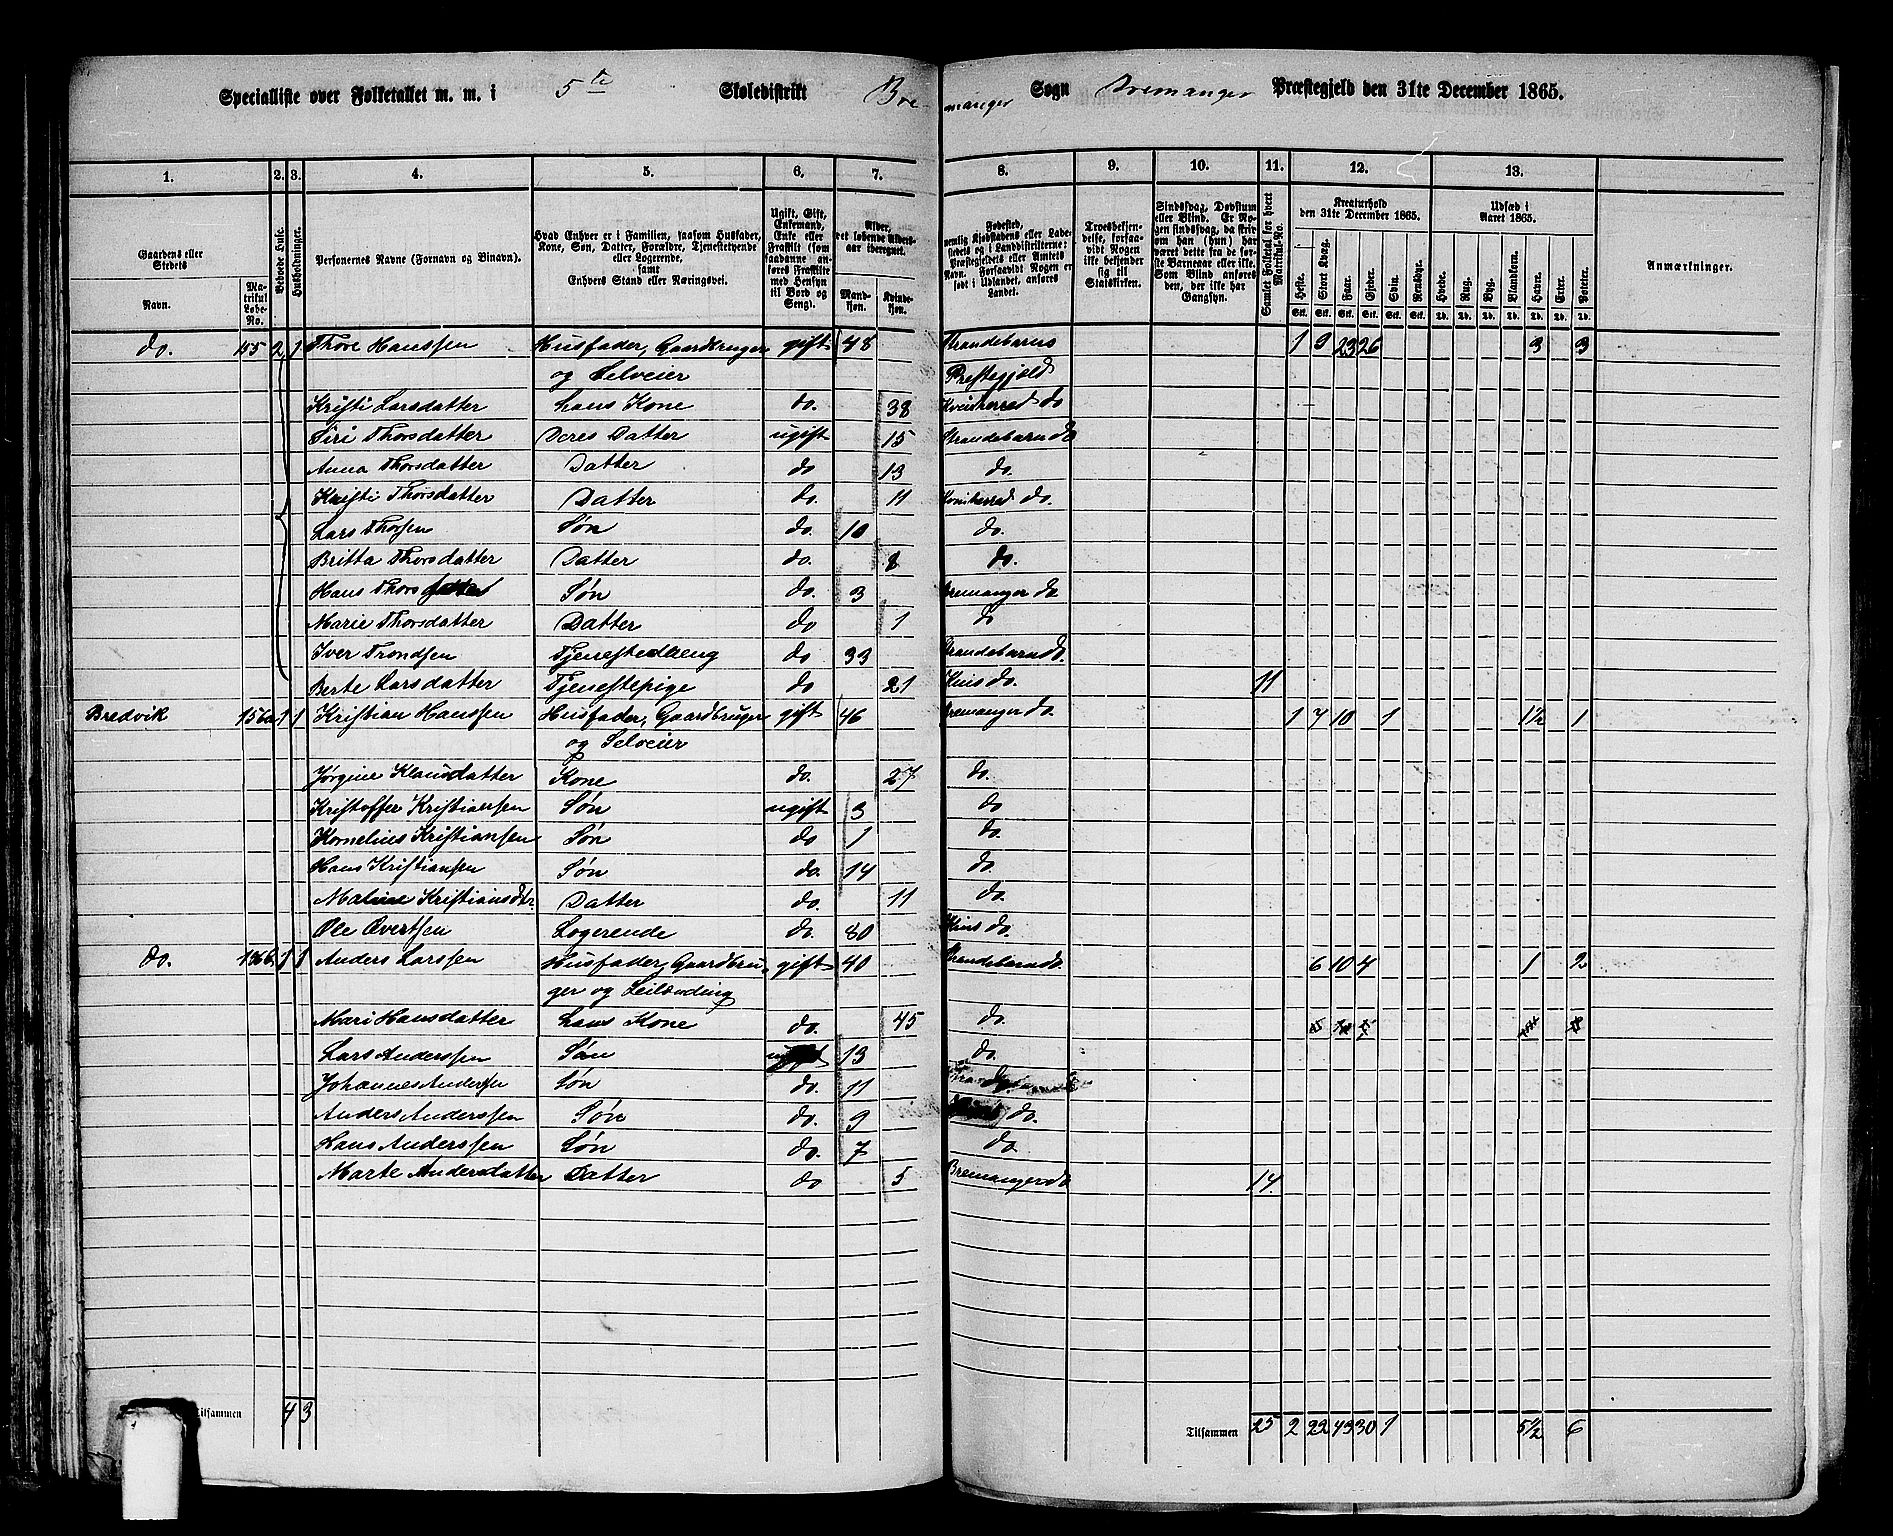 Specialliste over Folketallet m. m. i 5te Skoledistrikt Bremanger Sogn Bremanger Præstegjeld den 31te December 1865.
1. 2. 3. 4. 5. 6. 7. 8. 9. 10. 11. 12. 13.
Gaardens eller Stedets
Navn. Matrikul Løbe-No.
Beboede Huse.
Husholdninger.
Personernes Navne (Fornavn og Binavn).
Hvad Enhver er i Familien, saasom Husfader, Kone, Søn, Datter, Forældre, Tjenestetyende eller Logerende, samt Enhvers Stand eller Næringsvei.
Ugift, Gift, Enkemand, Enke eller Fraskilt (saadanne anføres Fraskilte med Hensyn til Bord og Seng).
Alder, det løbende Alders-aar iberegnet.
Mandkjøn. Kvindekjøn.
Troesbekjendelse, forsaavidt Nogen ikke bekjender sig til Statskirken.
Sindssvag, Døvstum eller Blind.
Samlet Folketal for hvert Matrikul-No.
Kreaturhold den 31te December 1865.
Heste. Stort Kvæg. Faar. Gjeder. Svin. Rensdyr.
Udsæd i Aaret 1865.
Hvede. Rug. Byg. Blandkorn. Havre. Erter. Poteter.
Anmærkninger.
do. 155 2 1 Thore Hanssen Husfader, Gaardbruger gift 48 Strandebarns 1 9 23 26 3 3
og Selveier Prestegjæld
Kristi Larsdatter hans Kone do. 38 do
Siri Thorsdatter Deres Datter ugift 15 Strandebarn do
Anna Thorsdatter Datter do 13 do.
Kristi Thorsdatter Datter do. 11 do.
Lars Thorsen Søn do. 10 do.
Britta Thorsdatter Datter do. 8 do.
Hans Søn do. 3 Bremanger do
Marie Thorsdatter Datter do 1 do
Iver Trondsen Tjenestedreng do 33 Strandebarn do.
Berte Larsdatter Tjenestepige do 21 Kins do. 11
Bredvik 156a 1 1 Kristian Hanssen Husfader, Gaardbruger gift 46 Bremanger do 1 7 10 1 1½ 1
og Selveier
Jørgine Klausdatter Kone do. 27 do.
Kristoffer Kristiansen Søn ugift 3 do
Kornelius Kristiansen Søn do 1 do.
Hans Kristiansen Søn do. 14 do.
Kristiansdtr. Datter do. 11 do.
Ole Overtsen Logerende do. 80 Kins do.
do. 156b 1 1 Anders Larssen Husfader, Gaardbru- gift 40 Strandebarn do. 6 10 4 1 2
ger og Leilænding
Mari Hansdatter hans Kone do. 45 do.
Lars Anderssen Søn 13 do.
Johannes Andersen Søn do. 11 do.
Anders Anderssen Søn do. 9 do.
Hans Anderssen Søn do. 7 do.
Marte Andersdatter Datter do 5 Bremanger do 14.
Tilsammen 4 3
Tilsammen 25 2 22 43 30 1 5½ 6